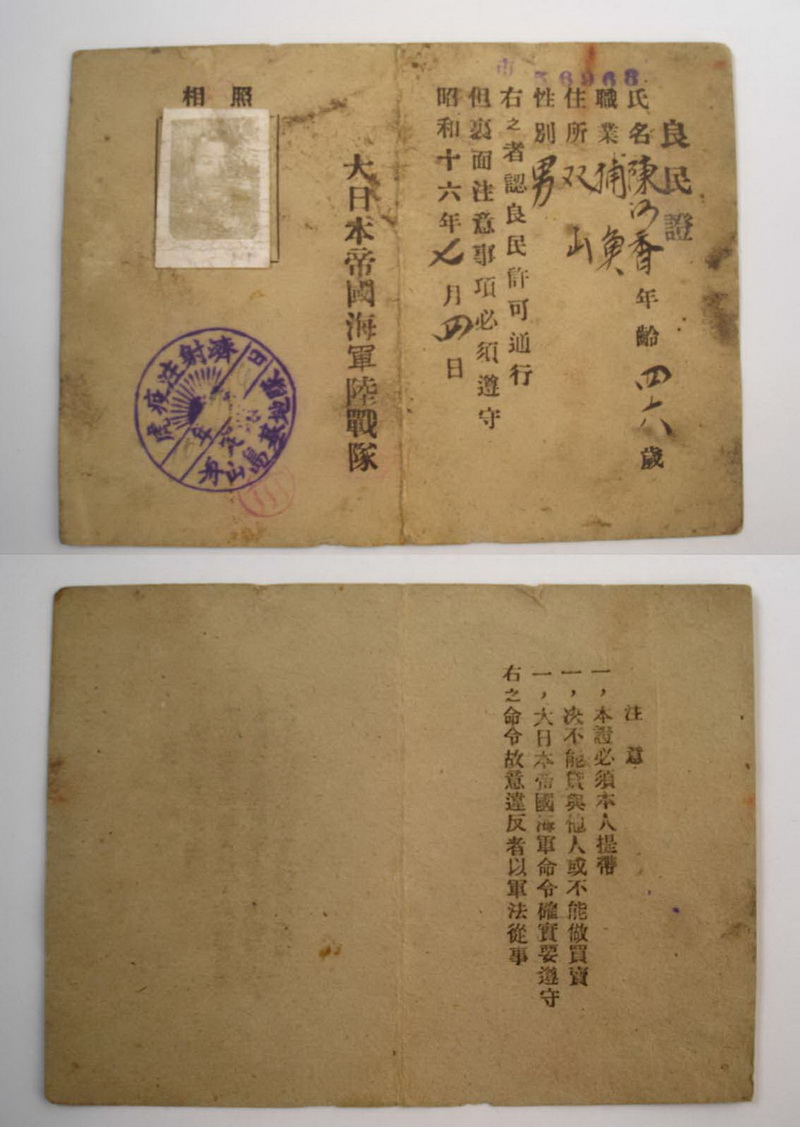 良民證
氏名陳香 年齡四六歲
職業捕魚
住所双山
性別男
右之者認良民許可通行
但裏面注意事項必須遵守
昭和十六年七月四日
大日本帝國海軍陸戰隊
照相
虎疫注射濟
年
日
舟山島基地隊
注意
一，本證必須本人提帶
一，决不能貸與他人或不能做買賣
一，大日本帝國海軍命令確實要遵守
右之命令故意違反者以軍法從事